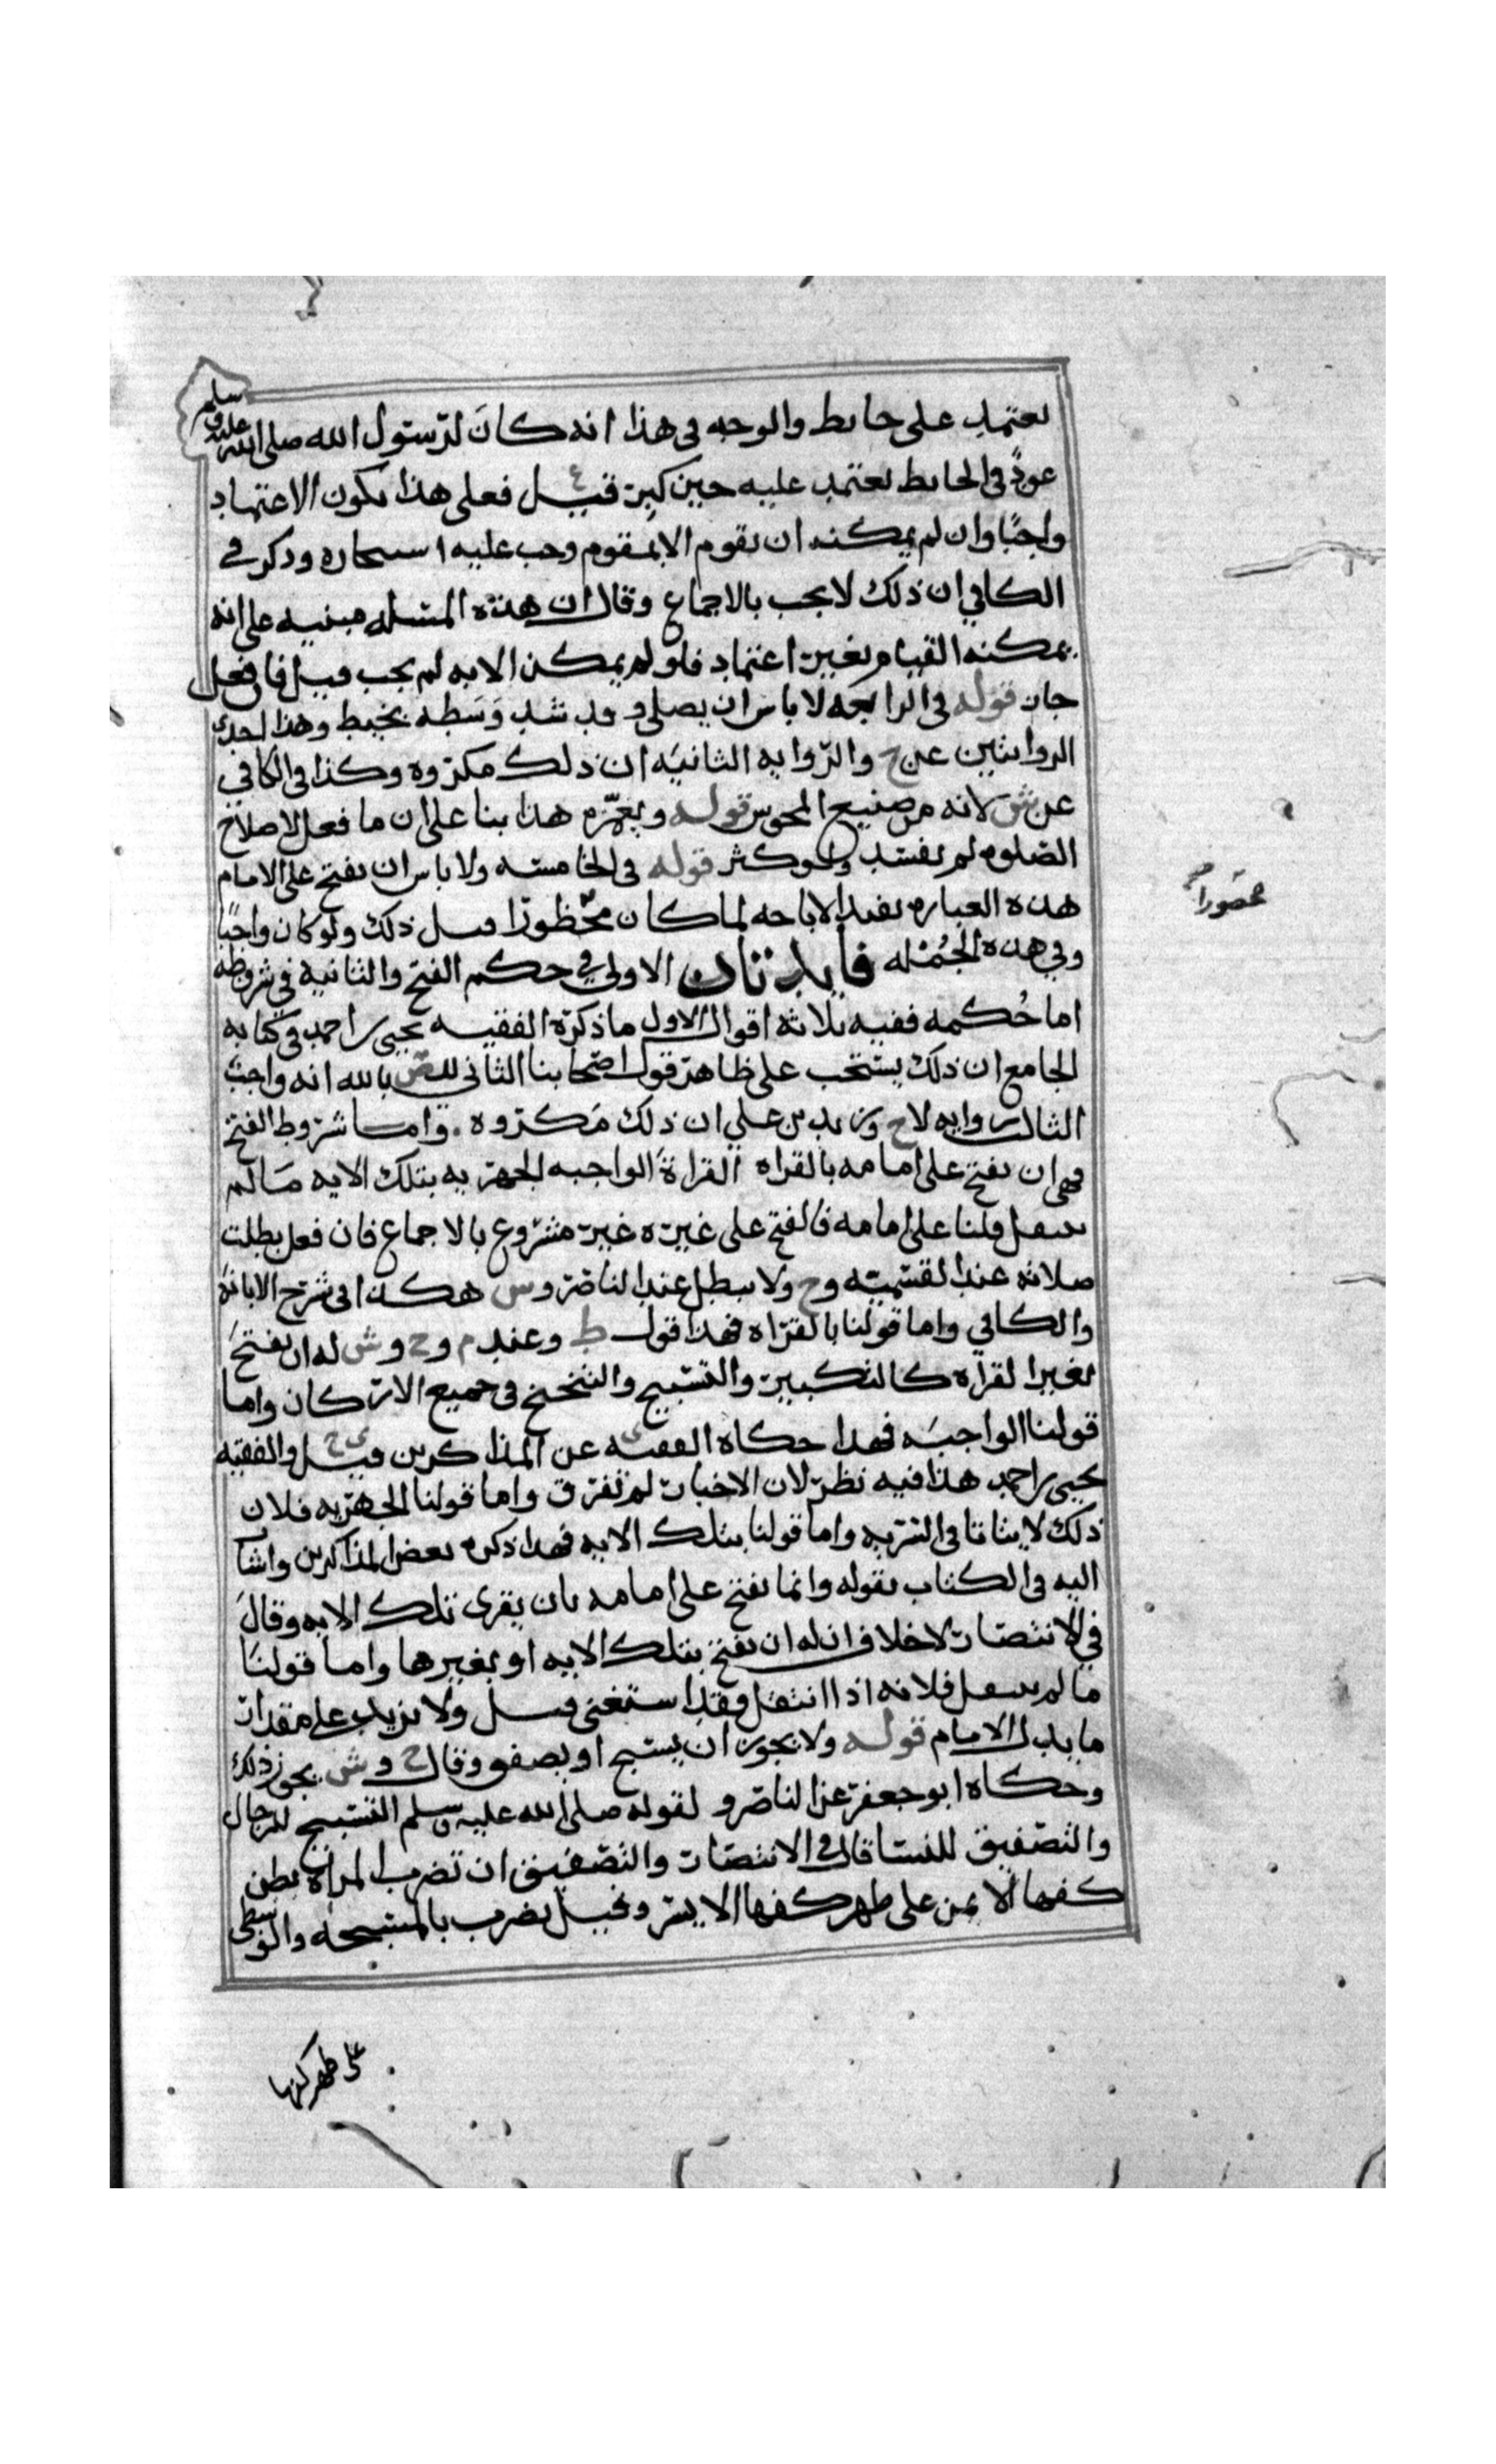 يعتمد على حايط والوجه في هذا انه كان لرسول الله صلى الله عليه وسلم
عودٌ في الحايط يعتمد عليه حين كبر قيل ع فعلى هذا يكون الاعتماد
واجبًا وان لم يمكنه ان يقوم الا بمقوم وجب عليه استيجاره وذكر في
الكافي ان ذلك لا يجب بالاجماع وقال ان هذه المسله مبنيه على انه
يمكنه القيام بغير اعتماد فلو لم يمكن الا به لم يجب قيل فان فعل
جاز قوله في الرابعه لا باس ان يصلي وقد شد وَسَطه بخيط وهذا احدى
الروايتين عن ح والرّوايه الثانيَه ان ذلك مكروه وكذا في الكافي
عن ش لانه من صنيع المجوس قوله ويعمّره هذا بنا على ان ما فعل لاصلاح
الصّلوه لم يفسد ولو كثر قوله في الخامسه ولا باس ان يفتح على الامام
هذه العباره تفيد الاباحه لما كان محظورًا قبل ذلك ولو كان واجبًا
وفي هذه الجُمْله فايدتان الاولى في حكم الفتح والثانيه في شروطه
اما حُكمه ففيه ثلاثه اقوال الاول ما ذكره الفقيه يحيى بن احمد في كتابه
الجامع ان ذلك يستحب على ظاهر قول اصحابنا الثاني للمنصور بالله انه واجبٌ
الثالث روايه لاح وزيد بن علي ان ذلك مَكروه . واما شروط الفتح
فهي ان يفتح على امامه بالقراه القراةَ الواجبه الجهريه بتلك الايه مَا لم
ينتقل قلنا على امامه فالفتح على غيره غير مشروع بالاجماع فان فعل بطلت
صلاته عند القسميّه وح ولا يبطل عند الناصر وس هكذا في شرح الابانة
والكافي واما قولنا بالقراه فهذا قول ط وعند م وح وش له ان يفتحَ
بغير القراه كالتكبير والتسبيح والتنحنح في جميع الاركان واما
قولنا الواجبَه فهذا حكاه الفقيه ي عن المذاكرين قيل ي ح والفقيه
يحيى بن احمد هذا فيه نظر لان الاخبار لم تفرق واما قولنا الجهريه فلان
ذلك لا يتاتا في السّريه واما قولنا بتلك الايه فهذا ذكره بعض المذاكرين واشا
اليه في الكتاب بقوله وانما يفتح على امامه بان يقرى تلك الايه وقالَ
في الانتصار لا خلاف ان له ان يفتح بتلك الايه او بغيرها واما قولنَا
ما لم ينتقل فلانه اذا انتقل فقد استغنى قيل ولا يزيد على مقدار
ما يدل الامام قوله ولا يجوز ان يسبح او يصفق وقال ح وش يجوز ذلك
وحكاه ابو جعفر عن الناصر و لقوله صلى الله عليه وسلم التسبيح للرجال
والتصفيق للنسا قال في الانتصار والتصفيق ان تضرب المراه بطن
كفها الايمن على ظهر كفها الايسر وقيل يضرب بالمسبحه والوسطى
على ظهر كفها